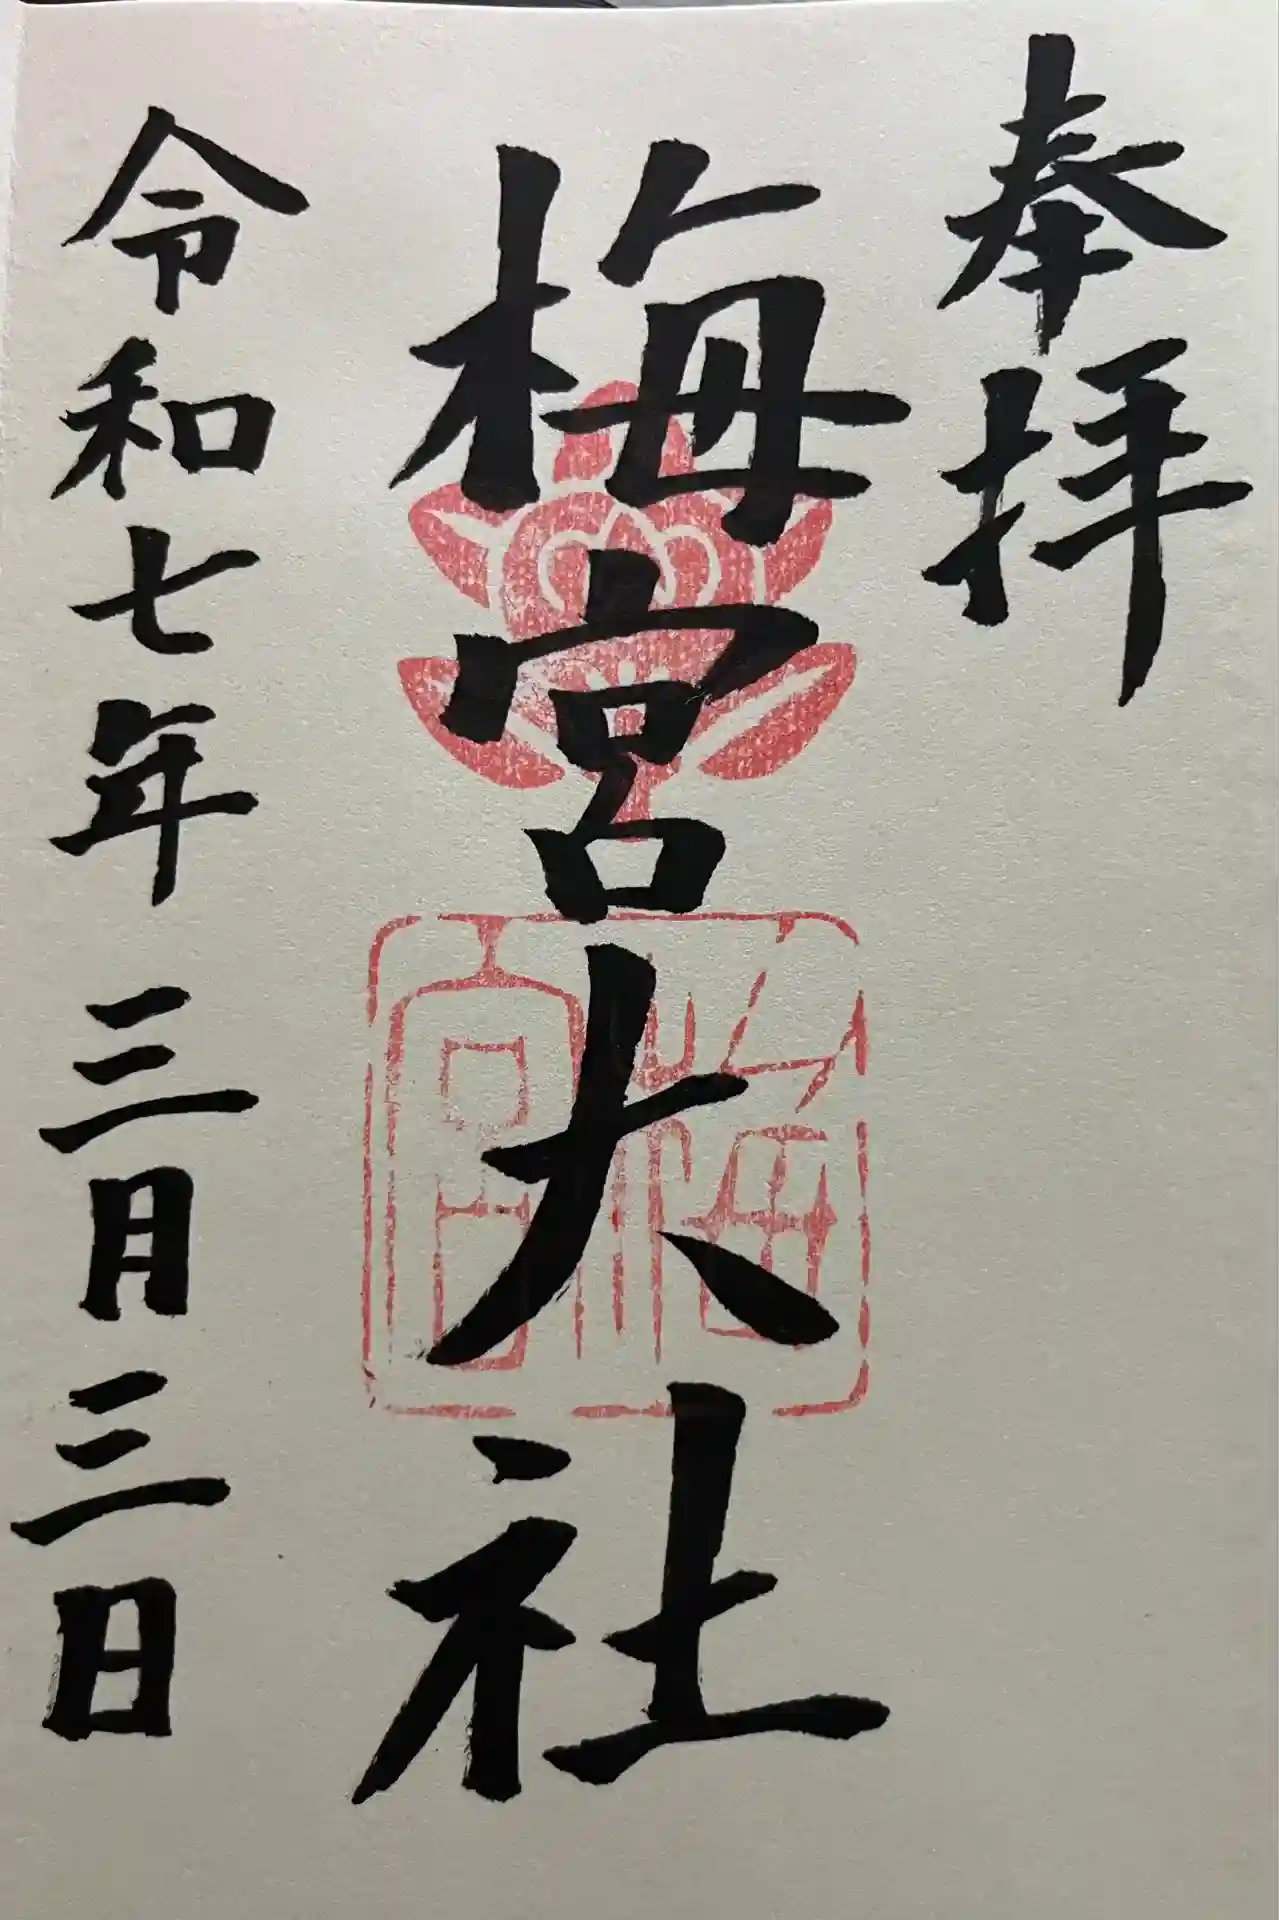 奉拝
梅宮大社
令和七年三月三日